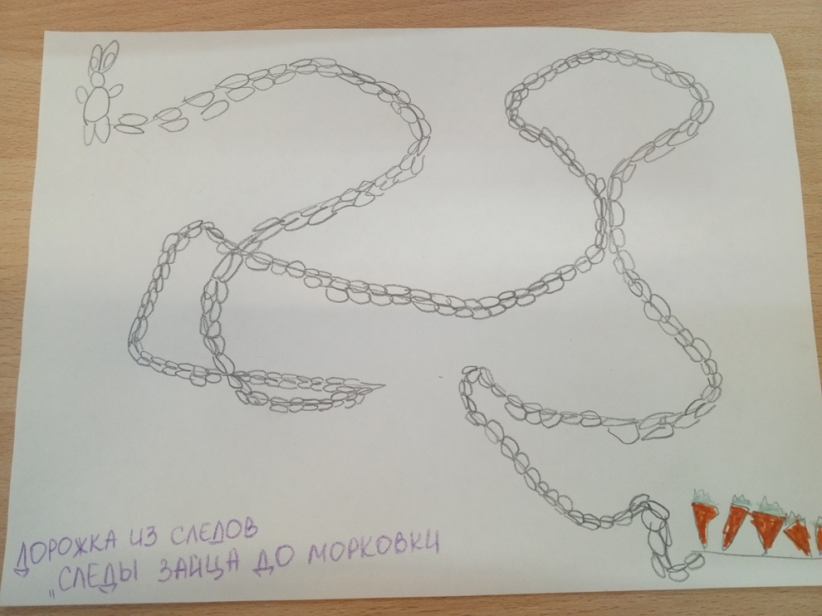 ДОРОЖКА ИЗ СЛЕДОВ
„СЛЕДЫ ЗАЙЦА ДО МОРКОВКИ